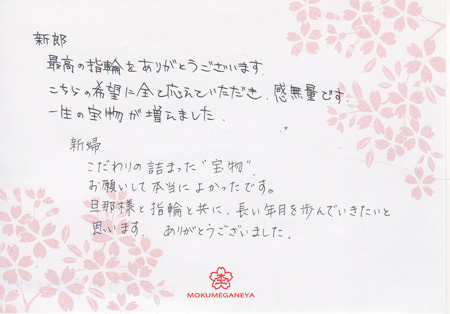 新郎
最高の指輪をありがとうございます.
こちらの希望に全て応えていただき、感無量です.
一生の宝物が増えました.
新婦
こだわりの詰まった"宝物".
お願いして本当によかったです。
旦那様と指輪と共に、長い年月を歩んでいきたいと
思います. ありがとうございました.
MOKUMEGANEYA